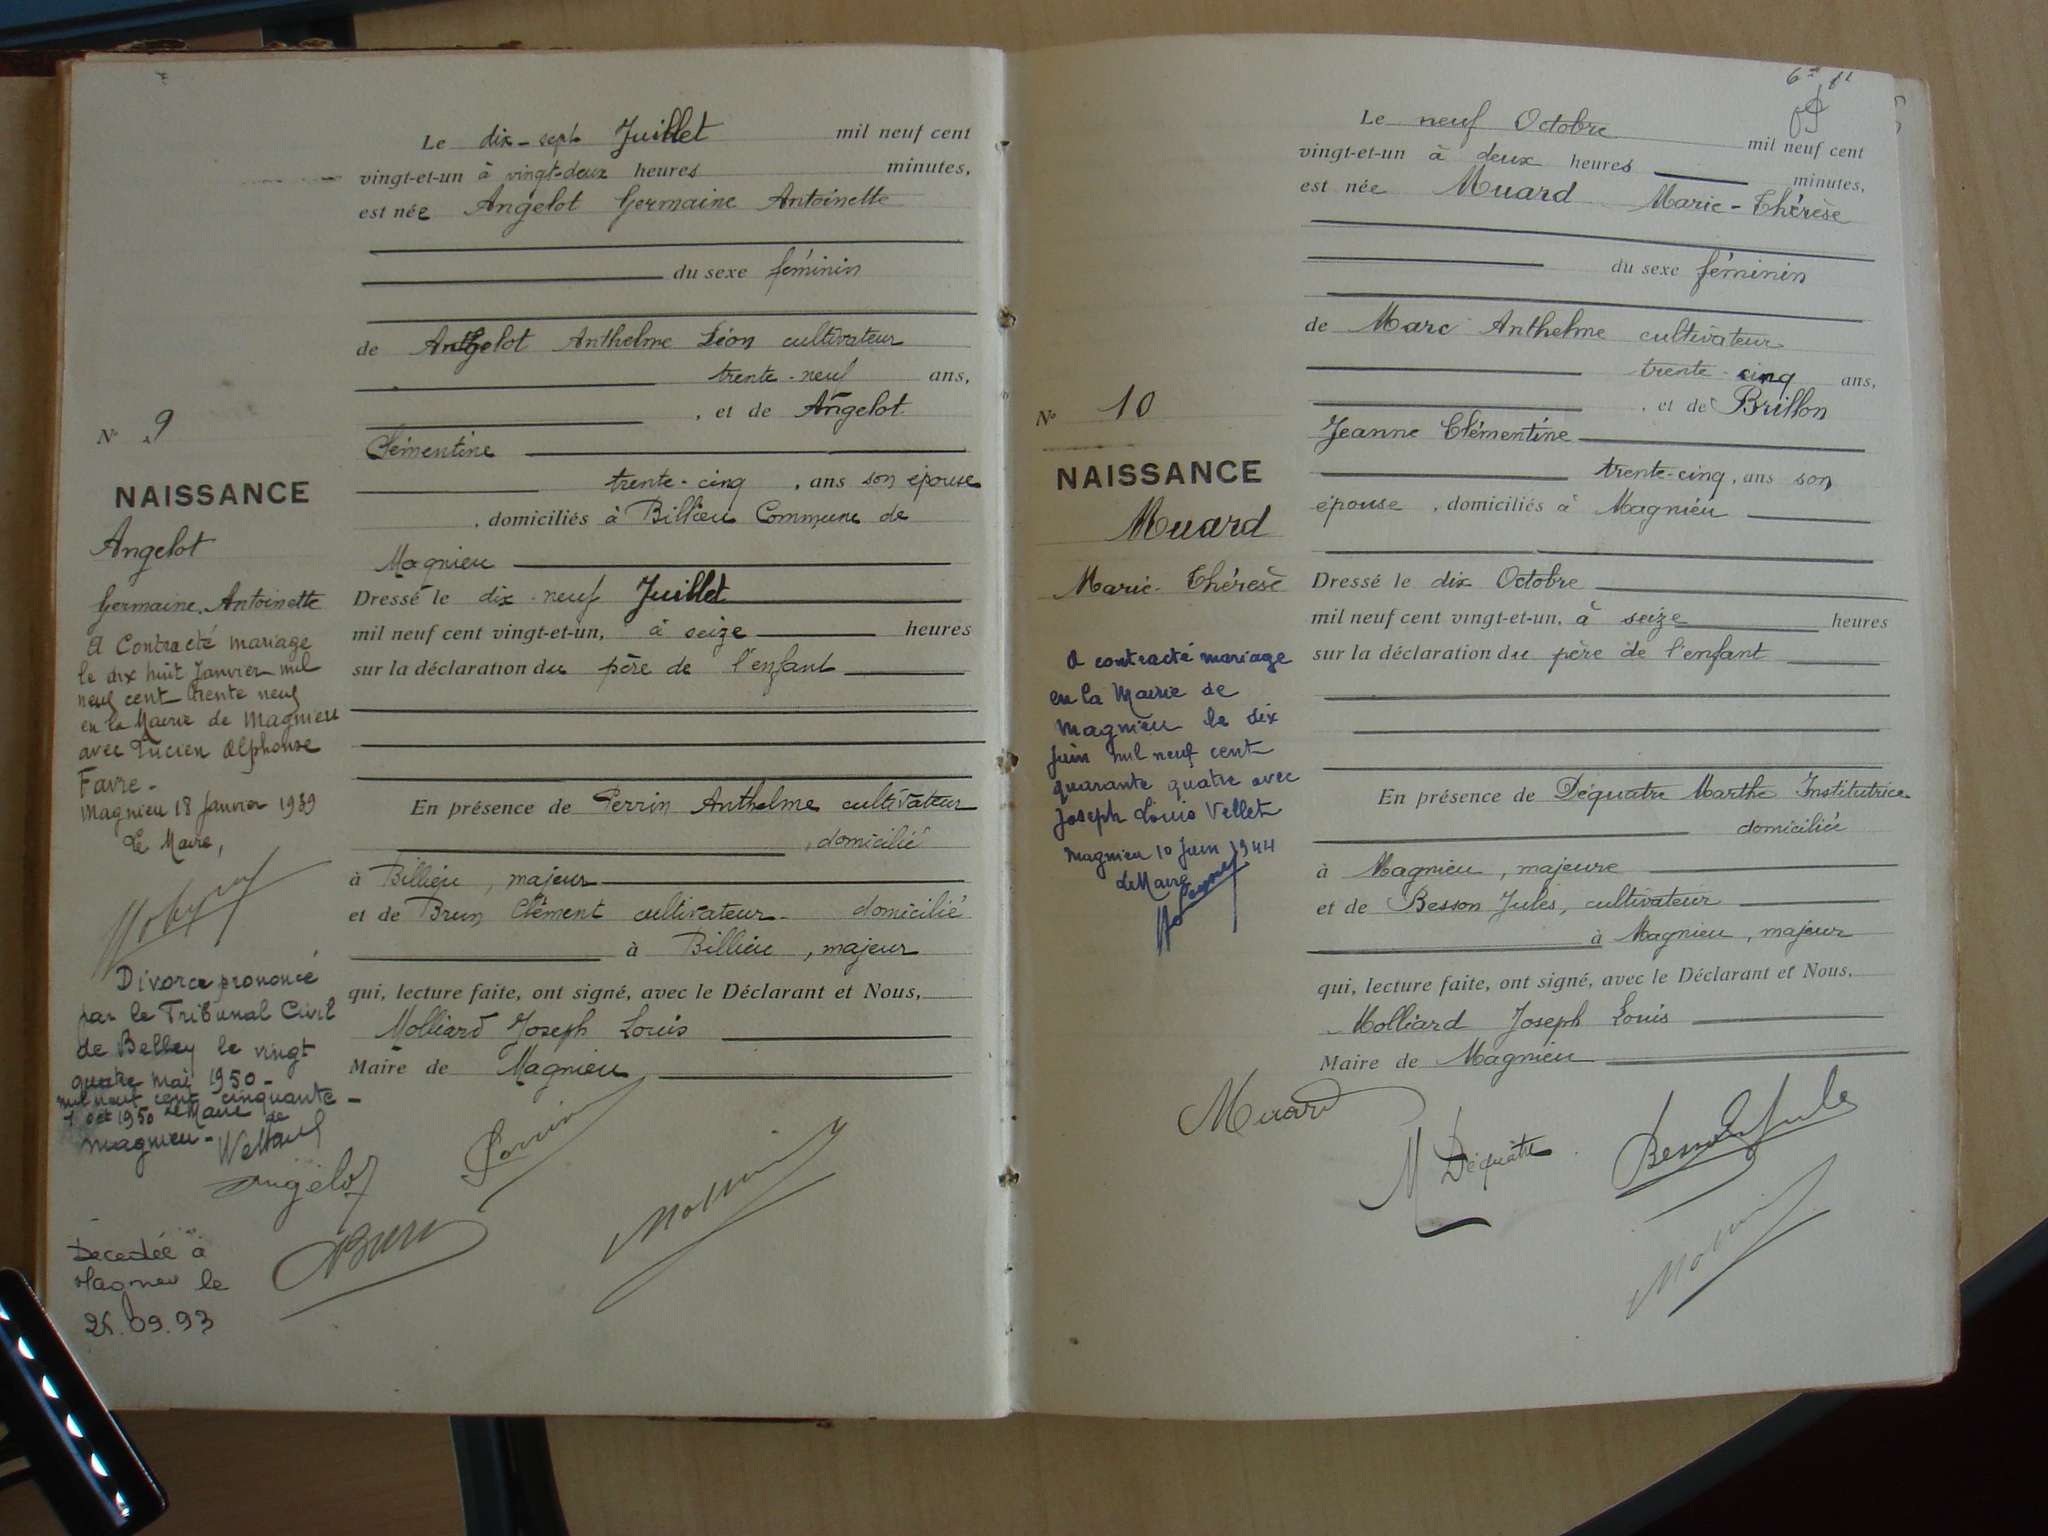 Le dix-sept Juillet mil neuf cent
vingt-et-un à vingt-deux heures minutes,
est née Angelot Germaine Antoinette
du sexe féminin
de Angelot Anthelme Léon cultivateur
trente-neuf ans,
, et de Angelot
Clémentine
trente-cinq , ans son épouse
, domiciliés à Billieu Commune de
Magnieu
Dressé le dix-neuf Juillet
mil neuf cent vingt-et-un, à seize heures
sur la déclaration du père de l'enfant
En présence de Perrin Anthelme cultivateur
, domicilié
à Billieu, majeur
et de Brun Clément cultivateur domicilié
à Billieu, majeur
qui, lecture faite, ont signé, avec le Déclarant et Nous,
Molliard Joseph Louis
Maire de Magnieu
N° 9
NAISSANCE
Angelot
Germaine Antoinette
A Contracté mariage
le dix huit Janvier mil
neuf cent trente neuf
en la Mairie de Magnieu
avec Lucien Alphonse
Favre -
Magnieu 18 Janvier 1939
Le Maire,
Divorce prononcé
par le Tribunal Civil
de Belley le vingt
quatre mai 1950 -
mil neuf cent cinquante -
7 oct 1950 Le Maire de
Magnieu -
Angelot
Perrin
Brun
Decedée à
Magnieu le
.09.93
Le neuf Octobre mil neuf cent
vingt-et-un à deux heures minutes,
est née Muard Marie-Thérèse
du sexe féminin
de Marc Anthelme cultivateur
trente-cinq ans,
, et de Brillon
Jeanne Clémentine
trente-cinq, ans son
épouse , domiciliés à Magnieu
Dressé le dix Octobre
mil neuf cent vingt-et-un, à seize heures
sur la déclaration du père de l'enfant
En présence de Dequatre Marthe Institutrice
domiciliée
à Magnieu, majeure
et de Besson Jules, cultivateur
à Magnieu, majeur
qui, lecture faite, ont signé, avec le Déclarant et Nous,
Molliard Joseph Louis
Maire de Magnieu
N° 10
NAISSANCE
Muard
Marie-Thérèse
A contracté mariage
en la Mairie de
Magnieu le dix
Juin mil neuf cent
quarante quatre avec
Joseph Louis Vellet
Magnieu 10 Juin 1944
Le Maire
Muard
M Dequatre
Besson Jules